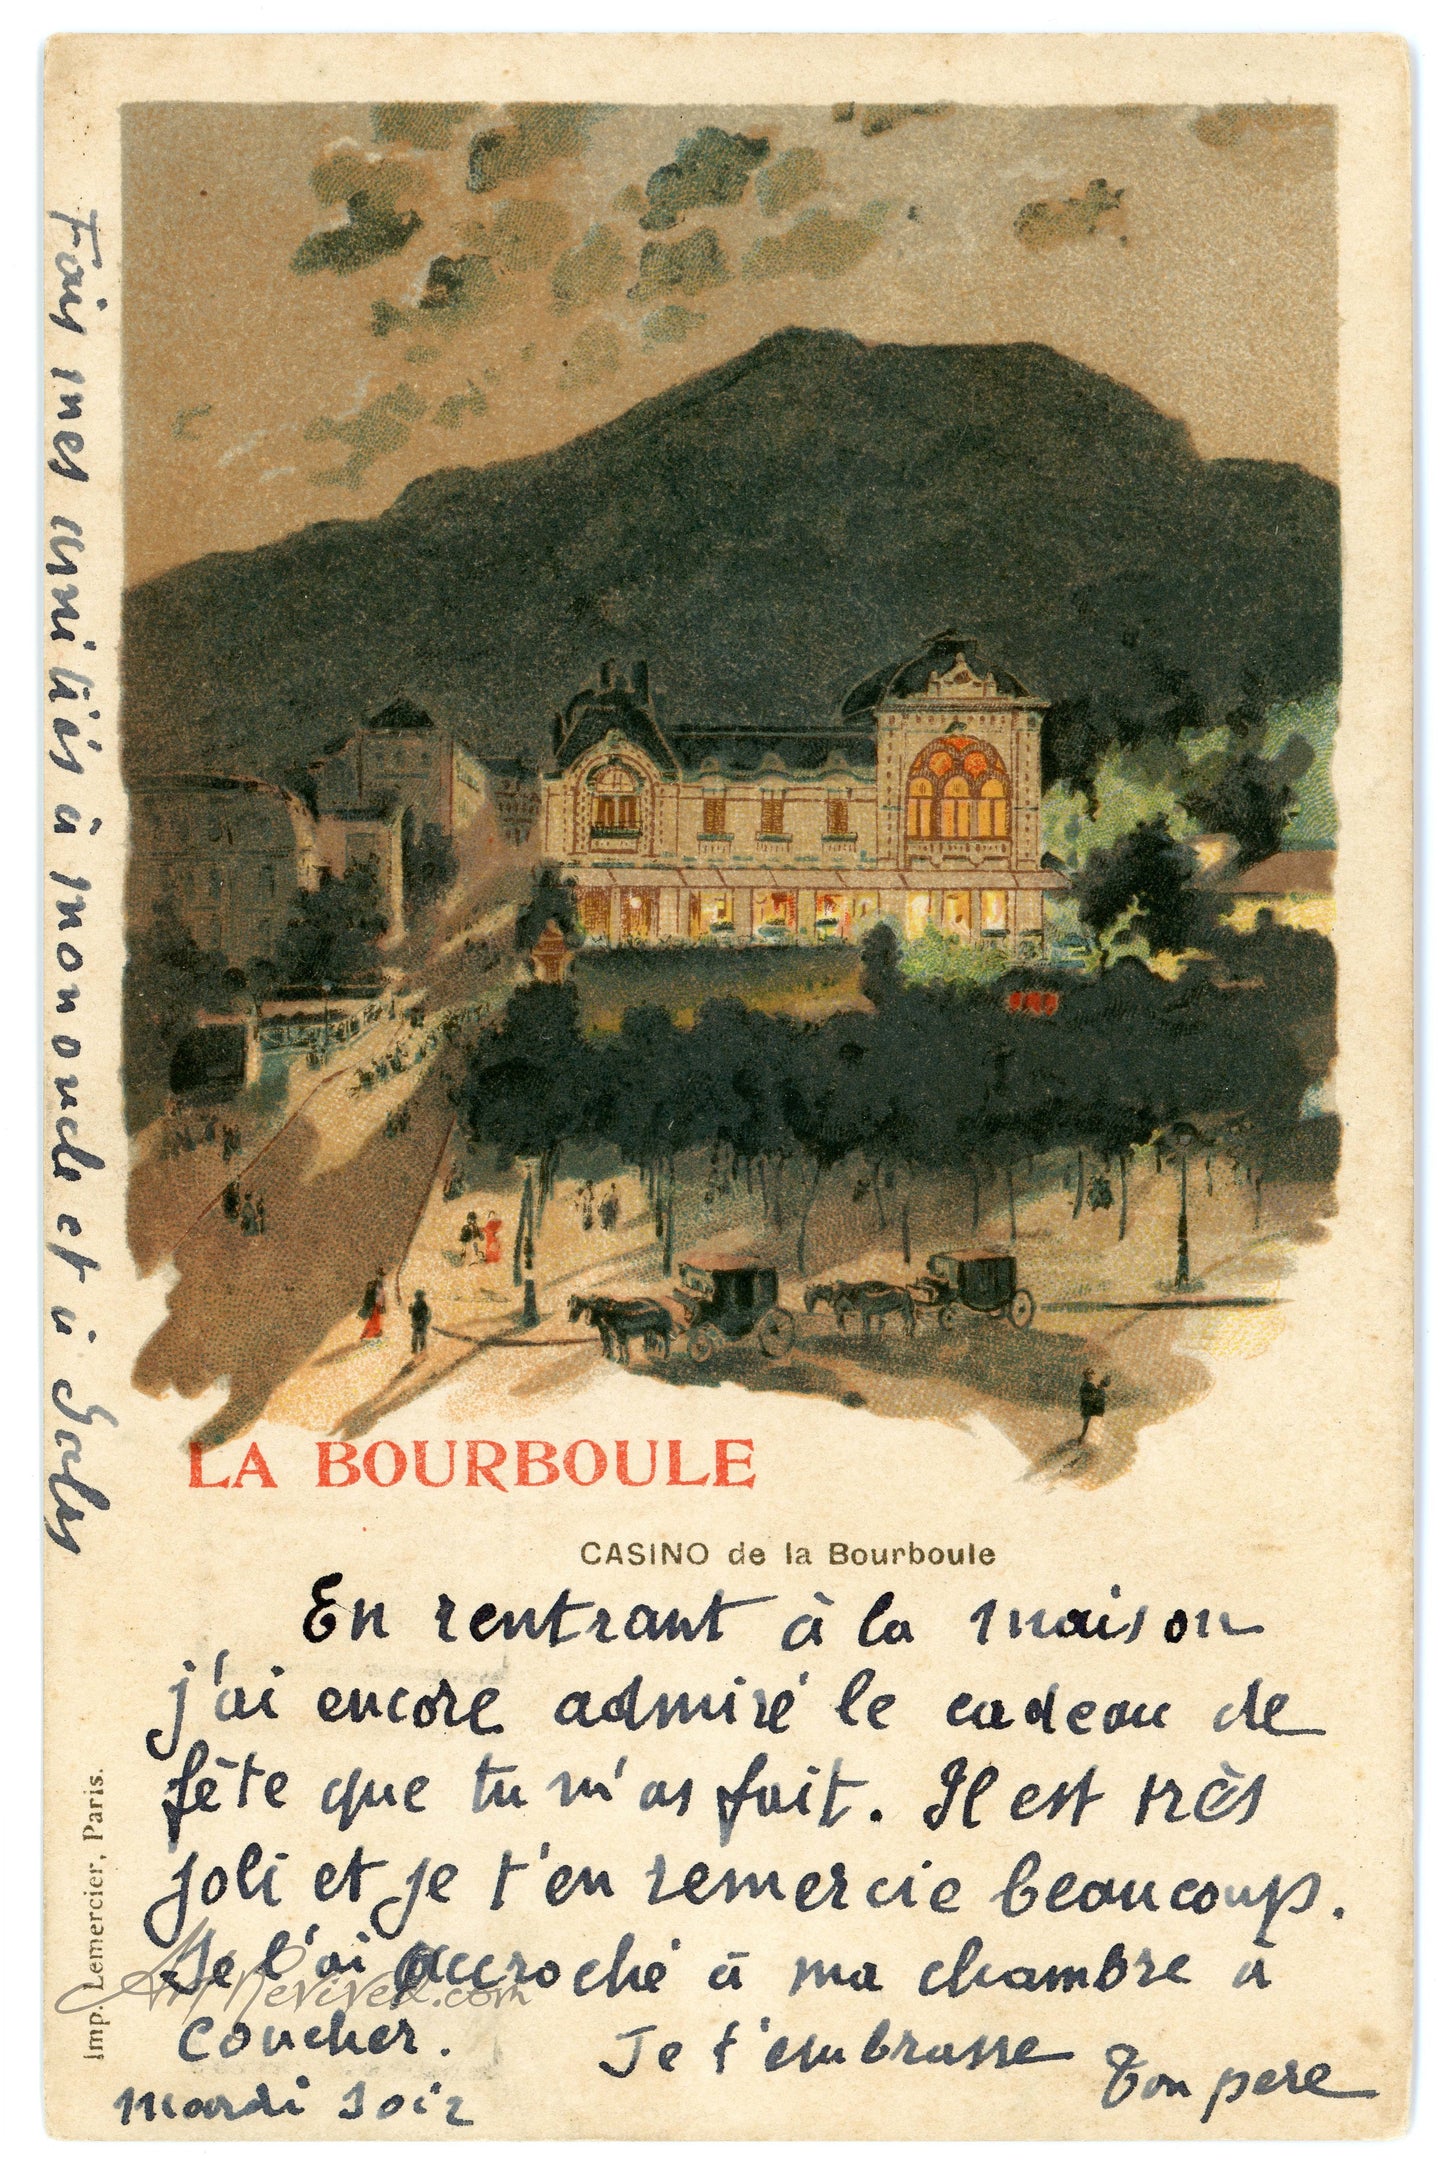 LA BOURBOULE
CASINO de la Bourboule
En rentrant à la maison
j'ai encore admiré le cadeau de
fête que tu m'as fait. Il est très
joli et je t'en remercie beaucoup.
Je l'ai accroché à ma chambre à
coucher. Je t'embrasse Ton père
mardi soir
Fais mes amitiés à mon oncle et à Gaby
Imp. Lemercier, Paris.
ArtRevived.com